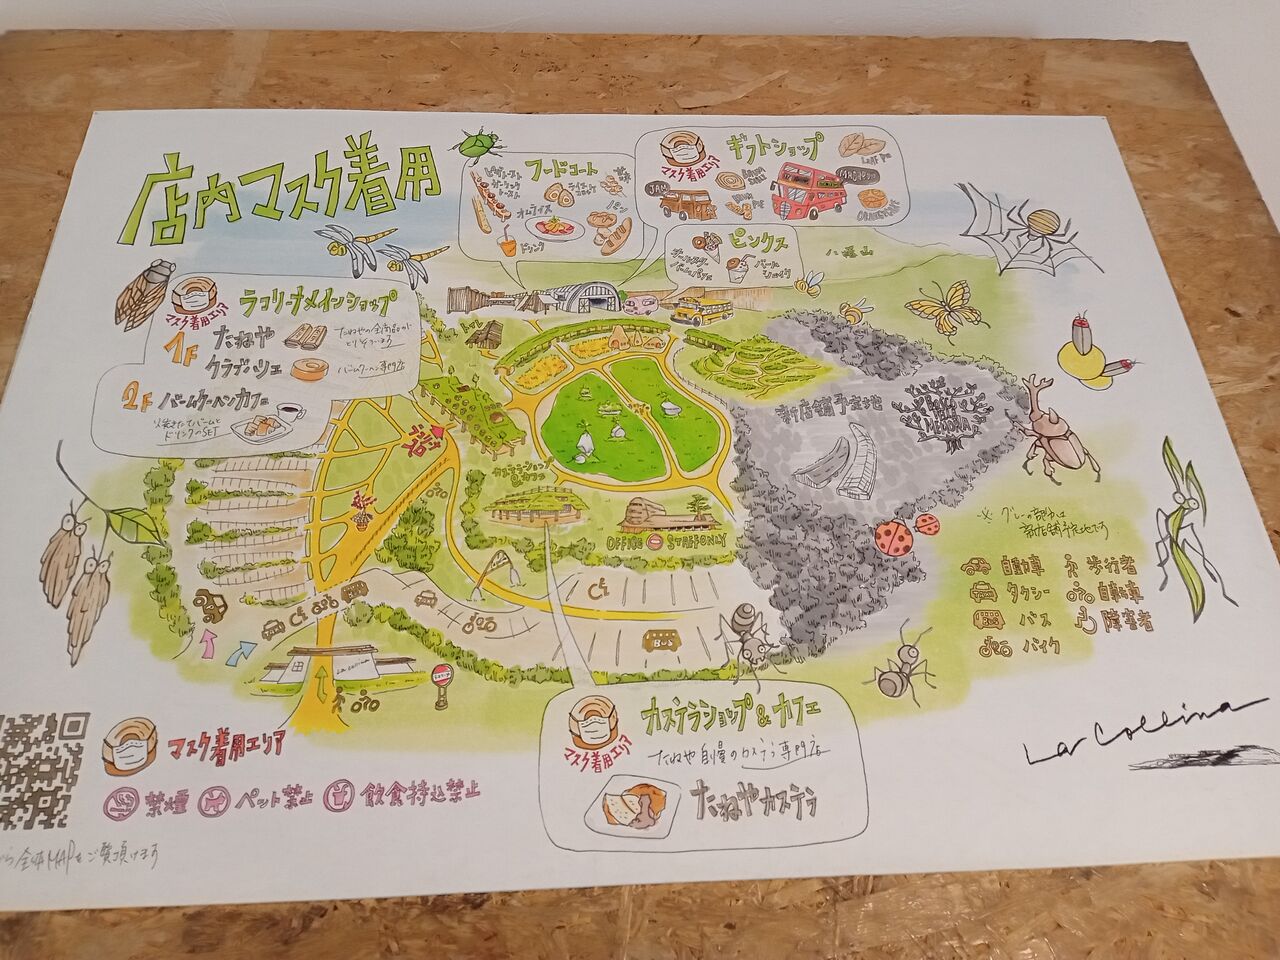 店内マスク着用
フードコート
オムライス
パン
ドリンク
ギフトショップ
マスク着用エリア
LEAF PIE
JAM
ピンクス
八幡山
マスク着用エリア
ラコリーナメインショップ
1F
たねや
たねやの全商品が
クラブハリエ
バームクーヘン専門店
2F
バームクーヘンカフェ
焼きたてバームと
ドリンクのSET
カステラショップ
&カフェ
OFFICE
STAFF ONLY
新店舗予定地
※グレー部分は
新店舗予定地です
自動車
歩行者
タクシー
自転車
バス
障害者
バイク
BUS
La Collina
マスク着用エリア
禁煙
ペット禁止
飲食持込禁止
全体MAPをご覧頂けます
マスク着用エリア
カステラショップ&カフェ
たねや自慢のカステラ専門店
たねやカステラ
La Collina